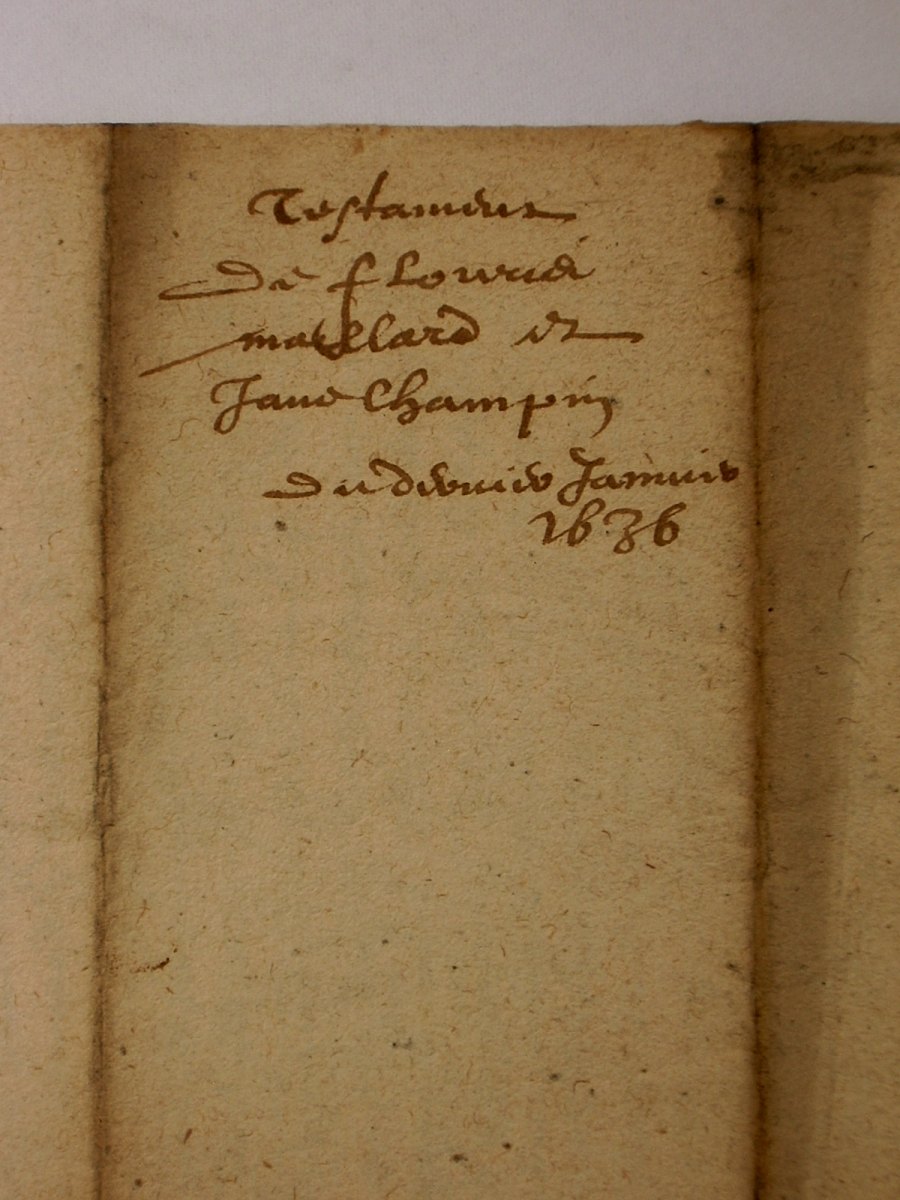 Testament
de flouren
maillard et
Jane Champin
du dernier Januier
1636